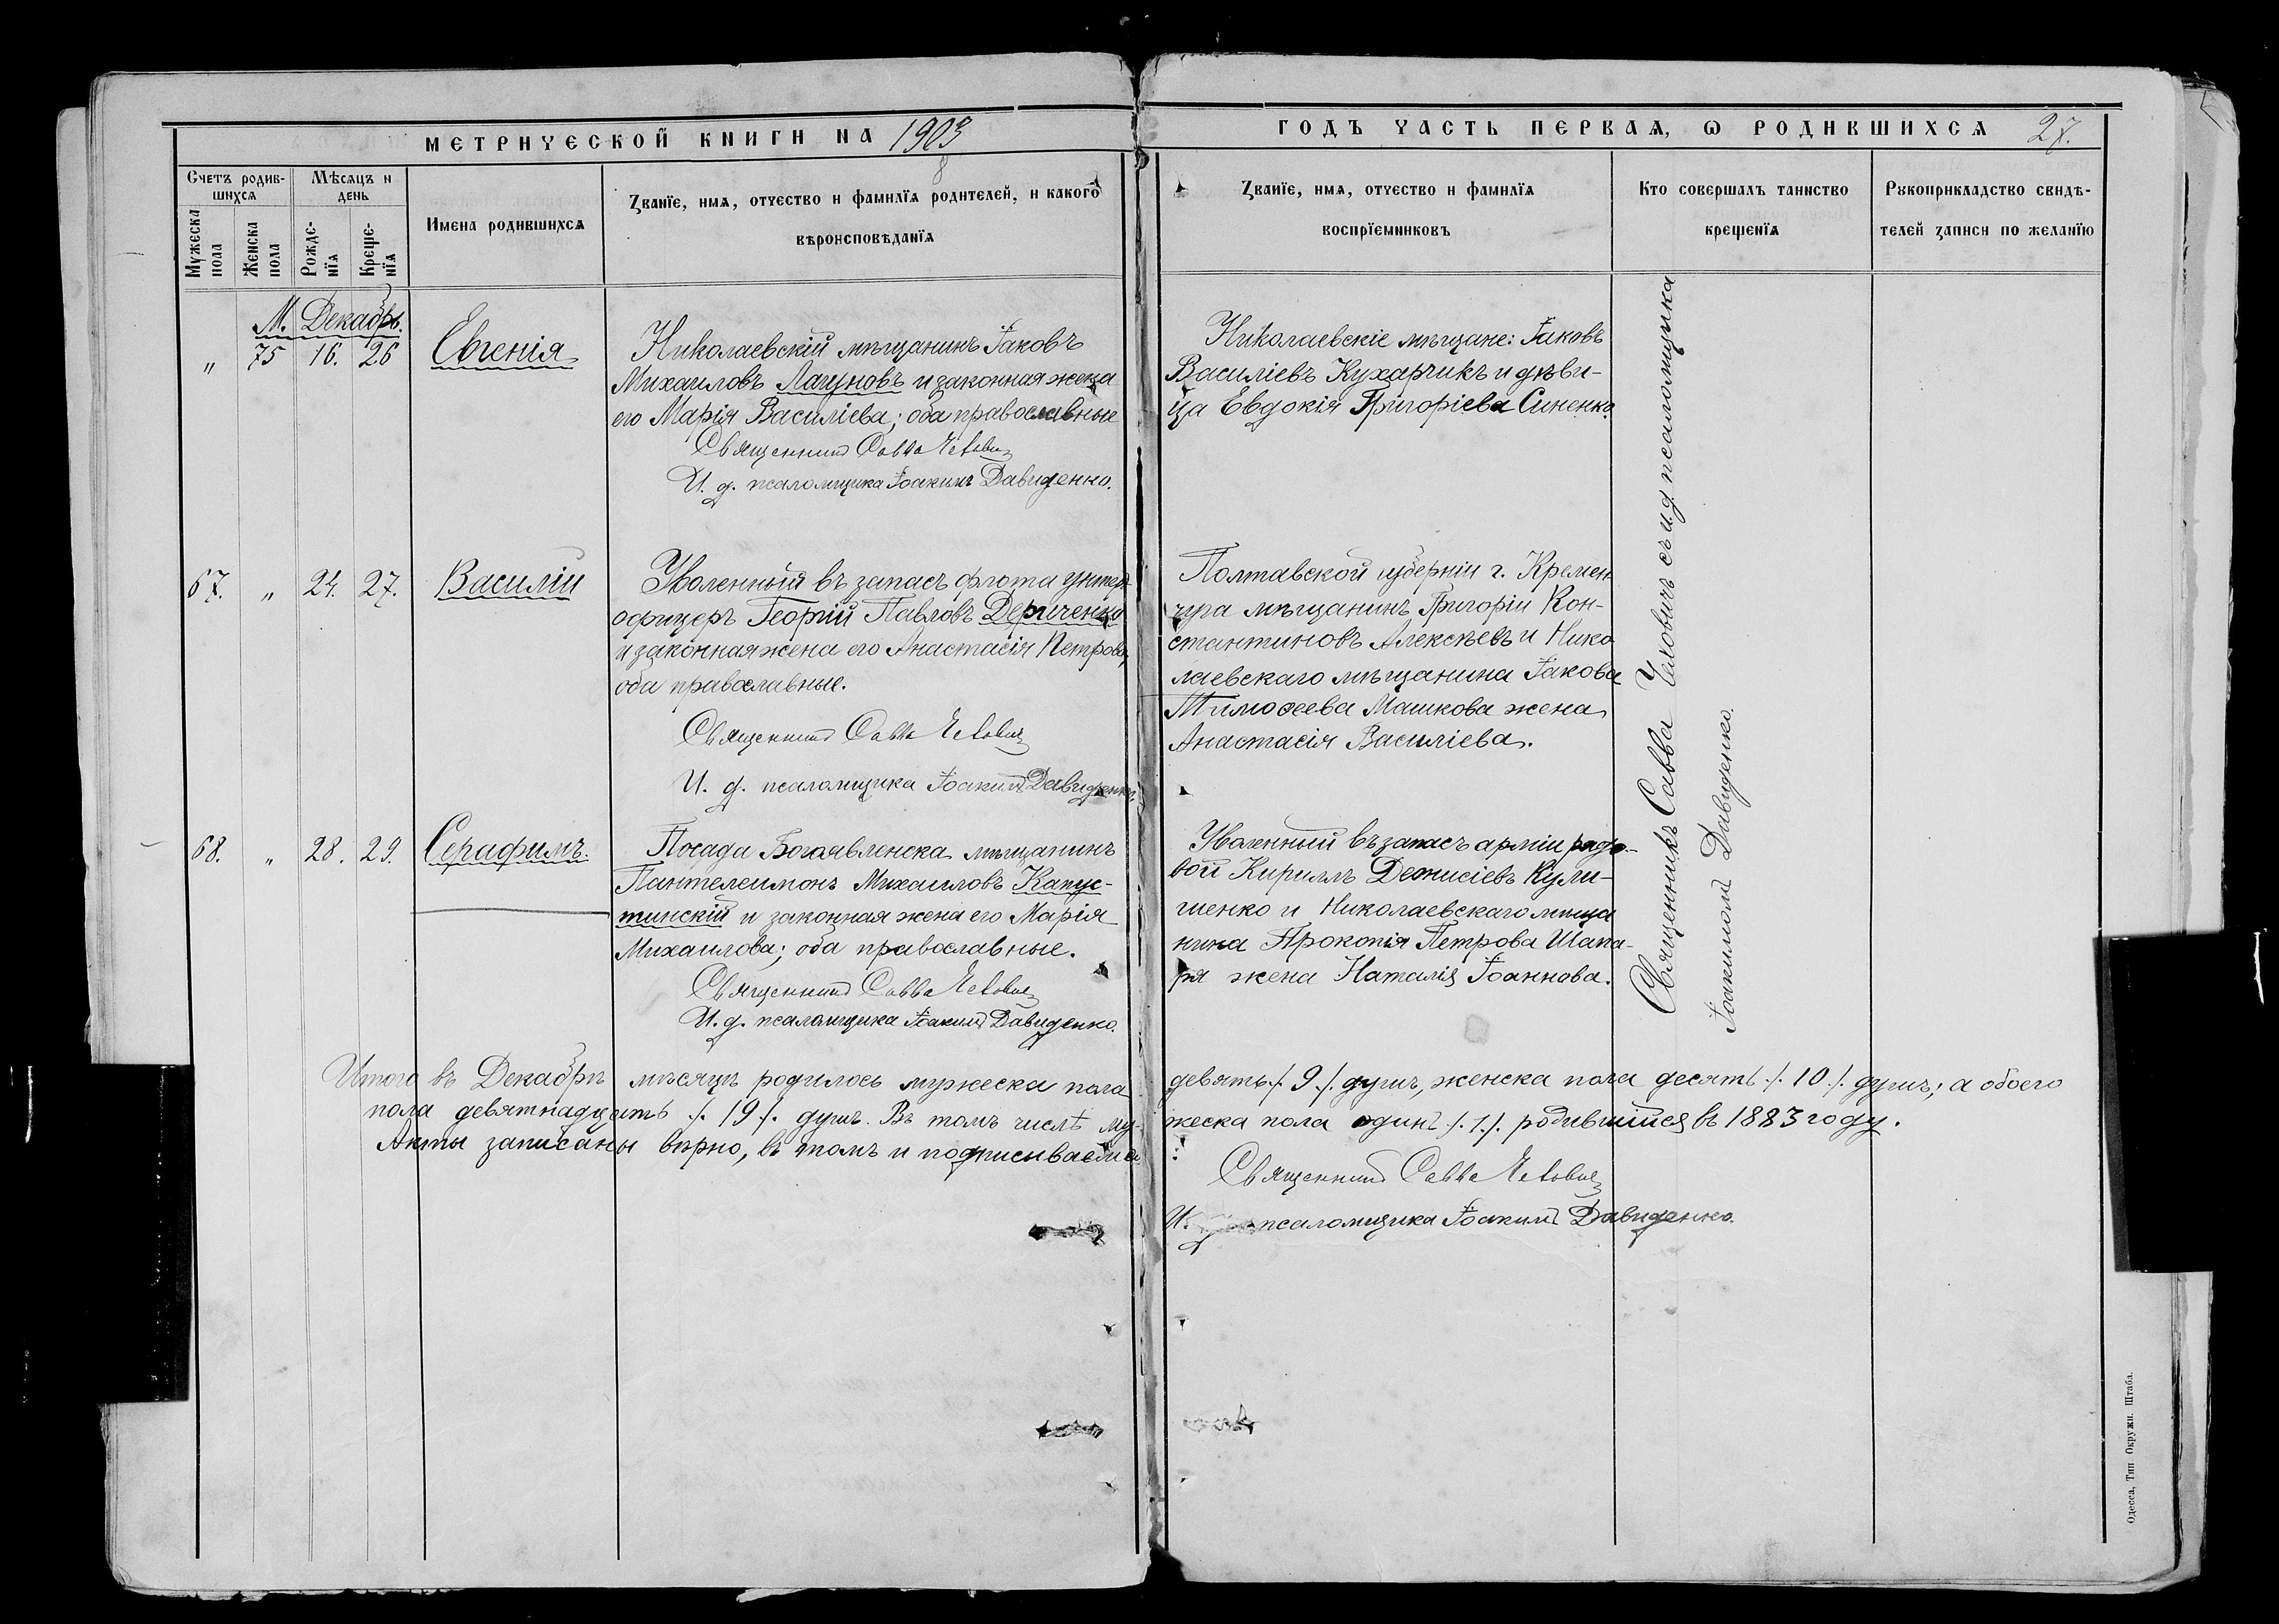 МЕТРИЧЕСКОЙ КНИГИ НА 1903
Счетъ родив-
шихся
Мѣсяцъ и
день
Мужеска
пола
Женска
пола
Рожде-
нія
Креще-
нія
Имена родившихся
Званіе, имя, отчество и фамилія родителей, и какого
вѣроисповѣданія
М. Декабрь.
„ 75 16. 26 Евгенія
Николаевскій мѣщанинъ Іаковъ
Михаиловъ Лагуновъ и законная жена
его Марія Василіева; оба православные
Священникъ Савва
И. д. псаломщика Іоакимъ Давиденко.
67. „ 24. 27. Василій
Уволенный въ запасъ флота унтер
офицеръ Георгій Павловъ Дериченко
и законная жена его Анастасія Петрова,
оба православные.
Священникъ Савва
И. д. псаломщика Іоакимъ Давиденко.
68. „ 28. 29. Серафимъ.
Посада Богоявленска мѣщанинъ
Пантелеимонъ Михаиловъ Капус-
тинскій и законная жена его Марія
Михаилова; оба православные.
Священникъ Савва
И. д. псаломщика Іоакимъ Давиденко.
Итого въ Декабрѣ мѣсяцѣ родилось мужеска пола
пола девятнадцать /. 19 /. душъ. Въ томъ числѣ му-
Акты записаны вѣрно, въ томъ и подписываемся
ГОДЪ ЧАСТЬ ПЕРВАЯ, Ѡ РОДИВШИХСЯ 27.
Званіе, имя, отчество и фамилія
воспріемниковъ
Кто совершалъ таинство
крещенія
Рукоприкладство свидѣ-
телей записи по желанію
Николаевскіе мѣщане: Іаковъ
Василіевъ Кухарчикъ и дѣви-
ца Евдокія Григоріева Синенко.
Полтавской губерніи г. Кремен
чуга мѣщанинъ Григорій Кон-
стантиновъ Алексѣевъ и Нико
лаевскаго мѣщанина Іакова
Тимоѳеева Машкова жена
Анастасія Василіева.
Уволенный въ запасъ арміи рядо-
вой Кириллъ Діонисіевъ Кули-
шенко и Николаевскаго мѣща
нина Прокопія Петрова Шапа-
ря жена Наталія Іоаннова.
Священникъ Савва съ и.д псаломщика
Іоакимомъ Давиденко.
девять /. 9 /. душъ, женска пола десять /. 10 /. душъ; а обоего
жеска пола одинъ /. 1 /. родившійся въ 1883 году.
Священникъ Савва
И. псаломщика Іоакимъ Давиденко.
Одесса, Тип Окружн. Штаба.